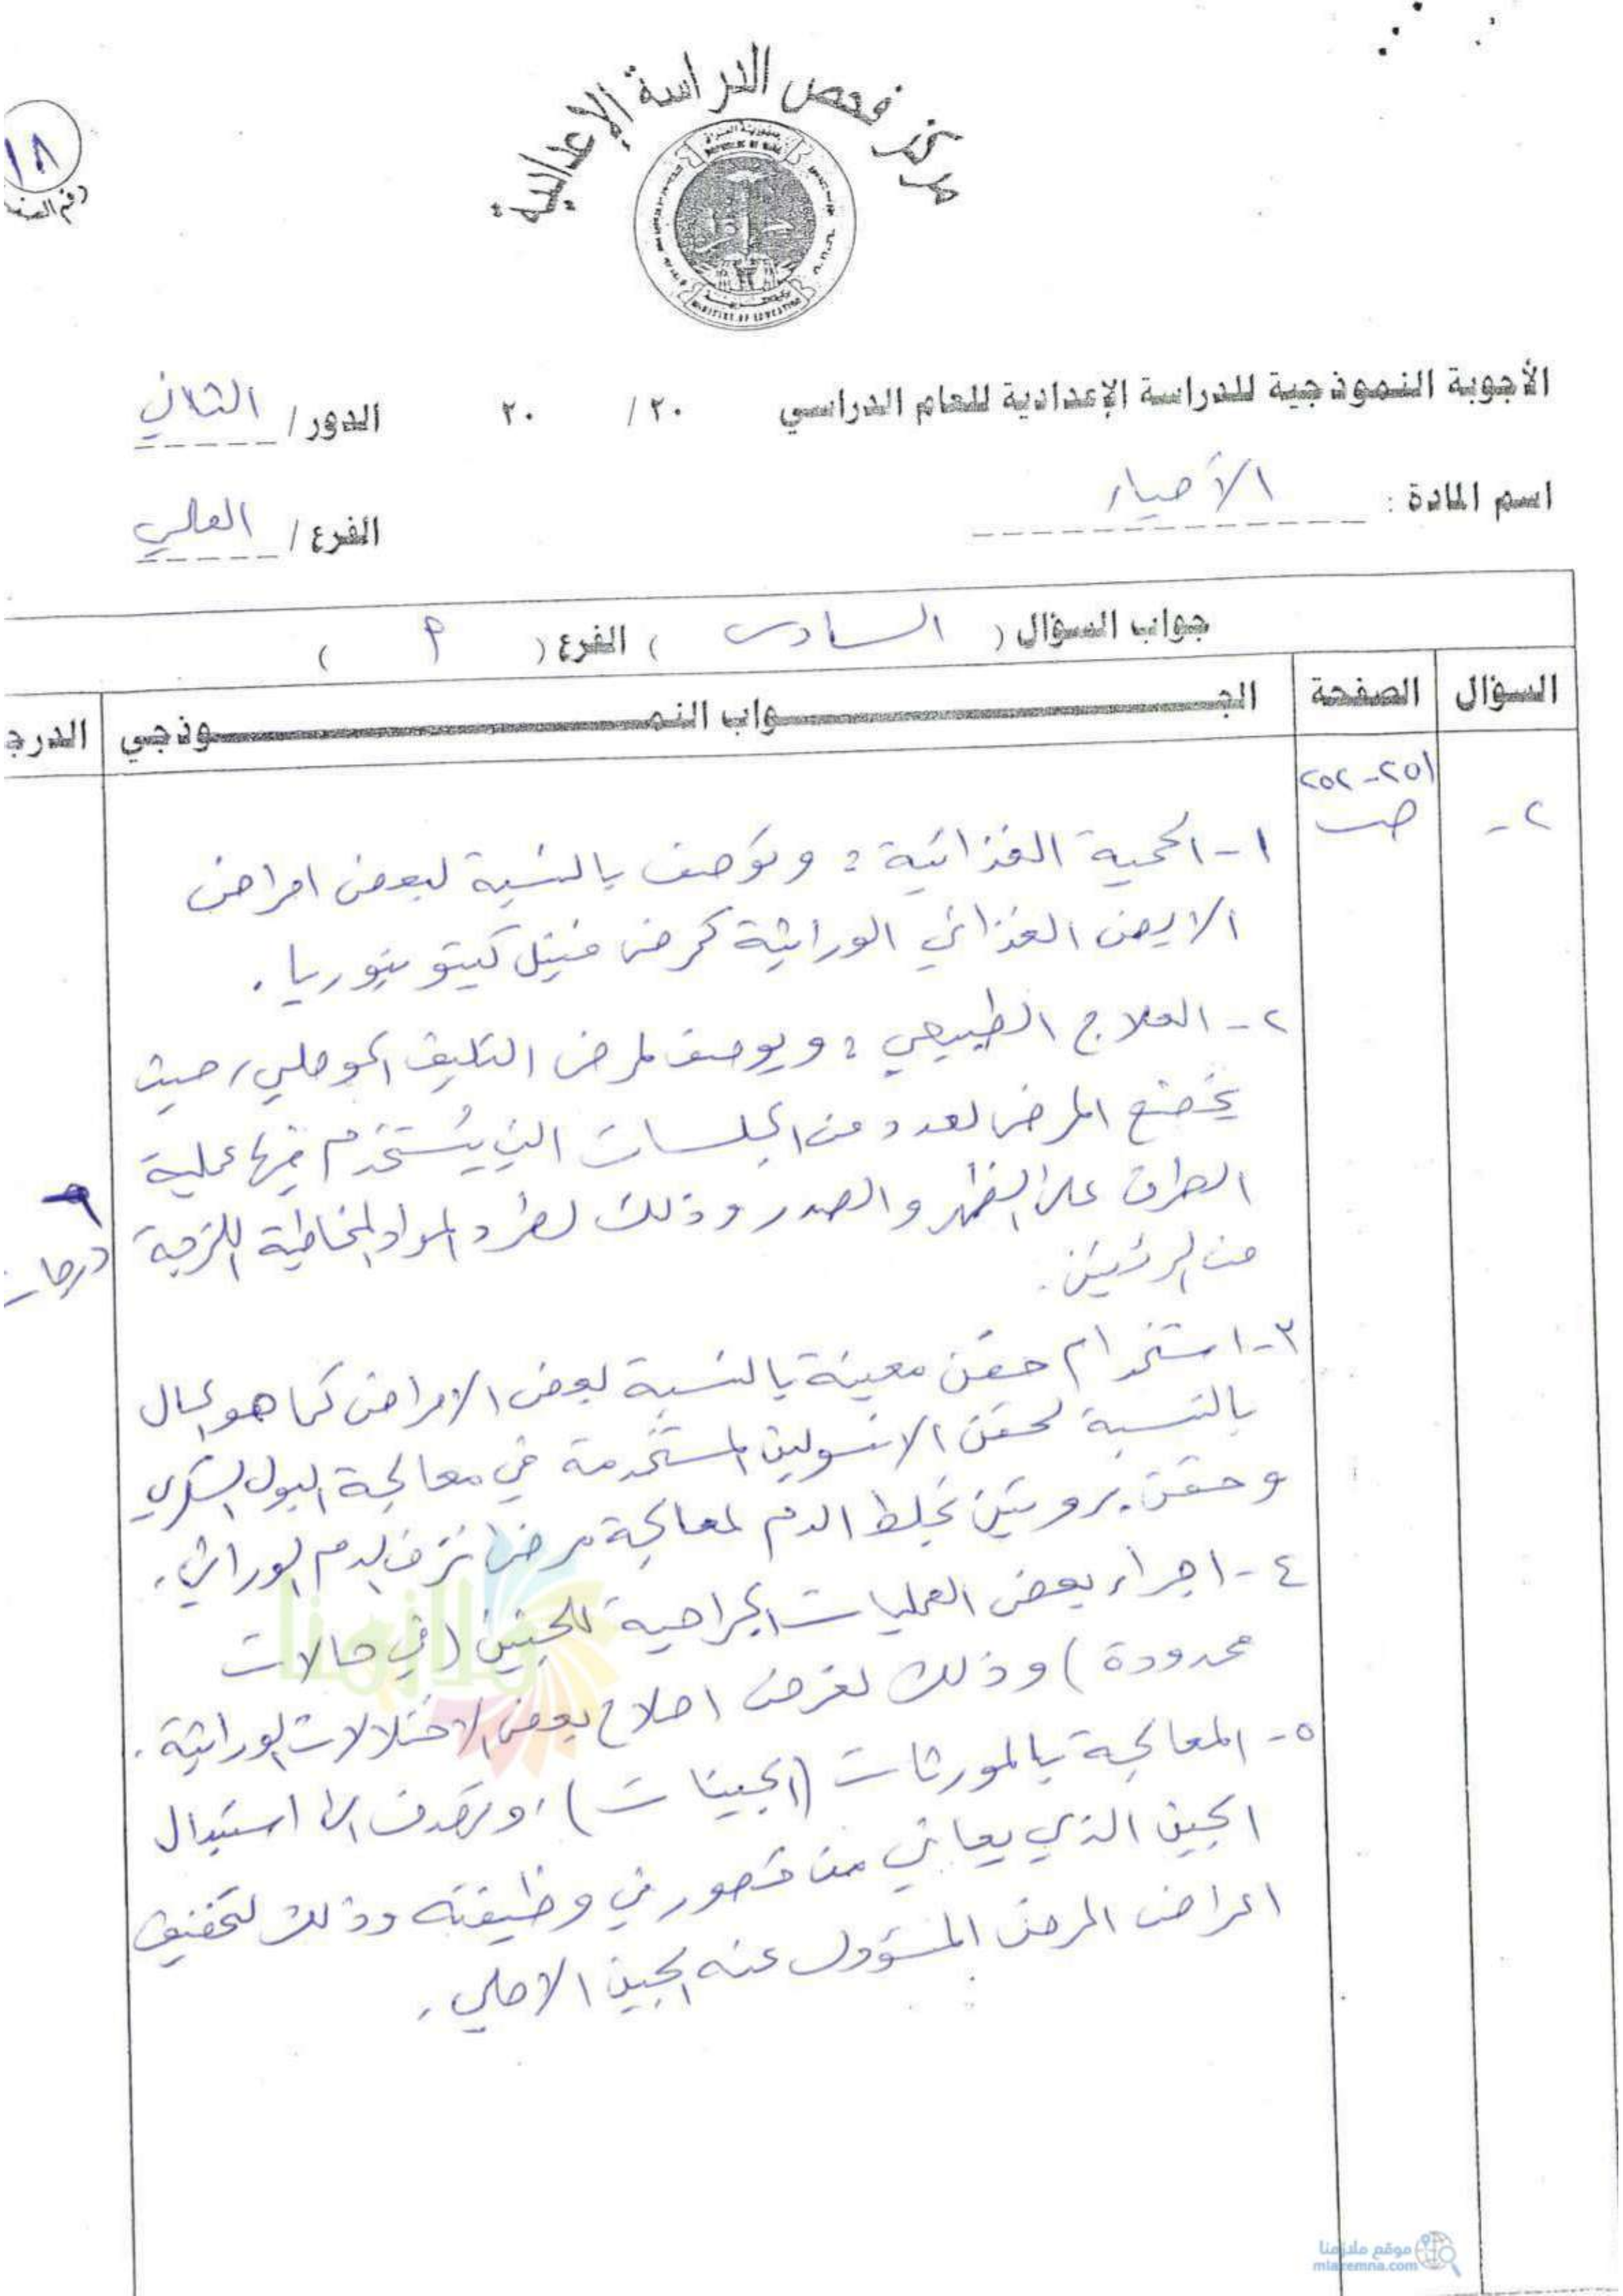 مركز فحص الدراسة الإعدادية
١٨
رقم
REPUBLIC OF IRAQ
MINISTRY OF EDUCATION
الأجوبة النموذجية للدراسة الإعدادية للعام الدراسي ٢٠ / ٢٠ الدور / الثاني
اسم المادة : الأحياء الفرع / العلمي
جواب السؤال ( السادس ) الفرع ( P )
السؤال الصفحة الجواب النموذجي الدرج
٢- ٢٥١-٢٥٢
ص
١- الحمية الغذائية : وتوصف بالنسبة لبعض امراض
الايض الغذائي الوراثية كمرض فينل كيتو نيوريا .
٢- العلاج الطبيعي : ويوصف لمرض التليف الحوصلي، حيث
يخضع المرضى لعدد من الجلسات التي يُستخدم فيها عملية
الطرق على الظهر والصدر وذلك لطرد المواد المخاطية اللزجة
من الرئتين .
درجات
٣- استخدام حقن معينة بالنسبة لبعض الامراض كما هو الحال
بالنسبة لحقن الانسولين المستخدمة في معالجة البول السكري
وحقن بروتين تجلط الدم لمعالجة مرض نزف الدم الوراثي .
٤- اجراء بعض العمليات الجراحية للجنين ( في حالات
محدودة ) وذلك لغرض اصلاح بعض الاختلالات الوراثية .
٥- المعالجة بالمورثات (الجينات) : وتهدف الى استبدال
الجين الذي يعاني من قصور في وظيفته وذلك لتخفيف
اعراض المرض المسؤول عنه الجين الاصلي .
ملازمنا
موقع ملازمنا
mlazemna.com